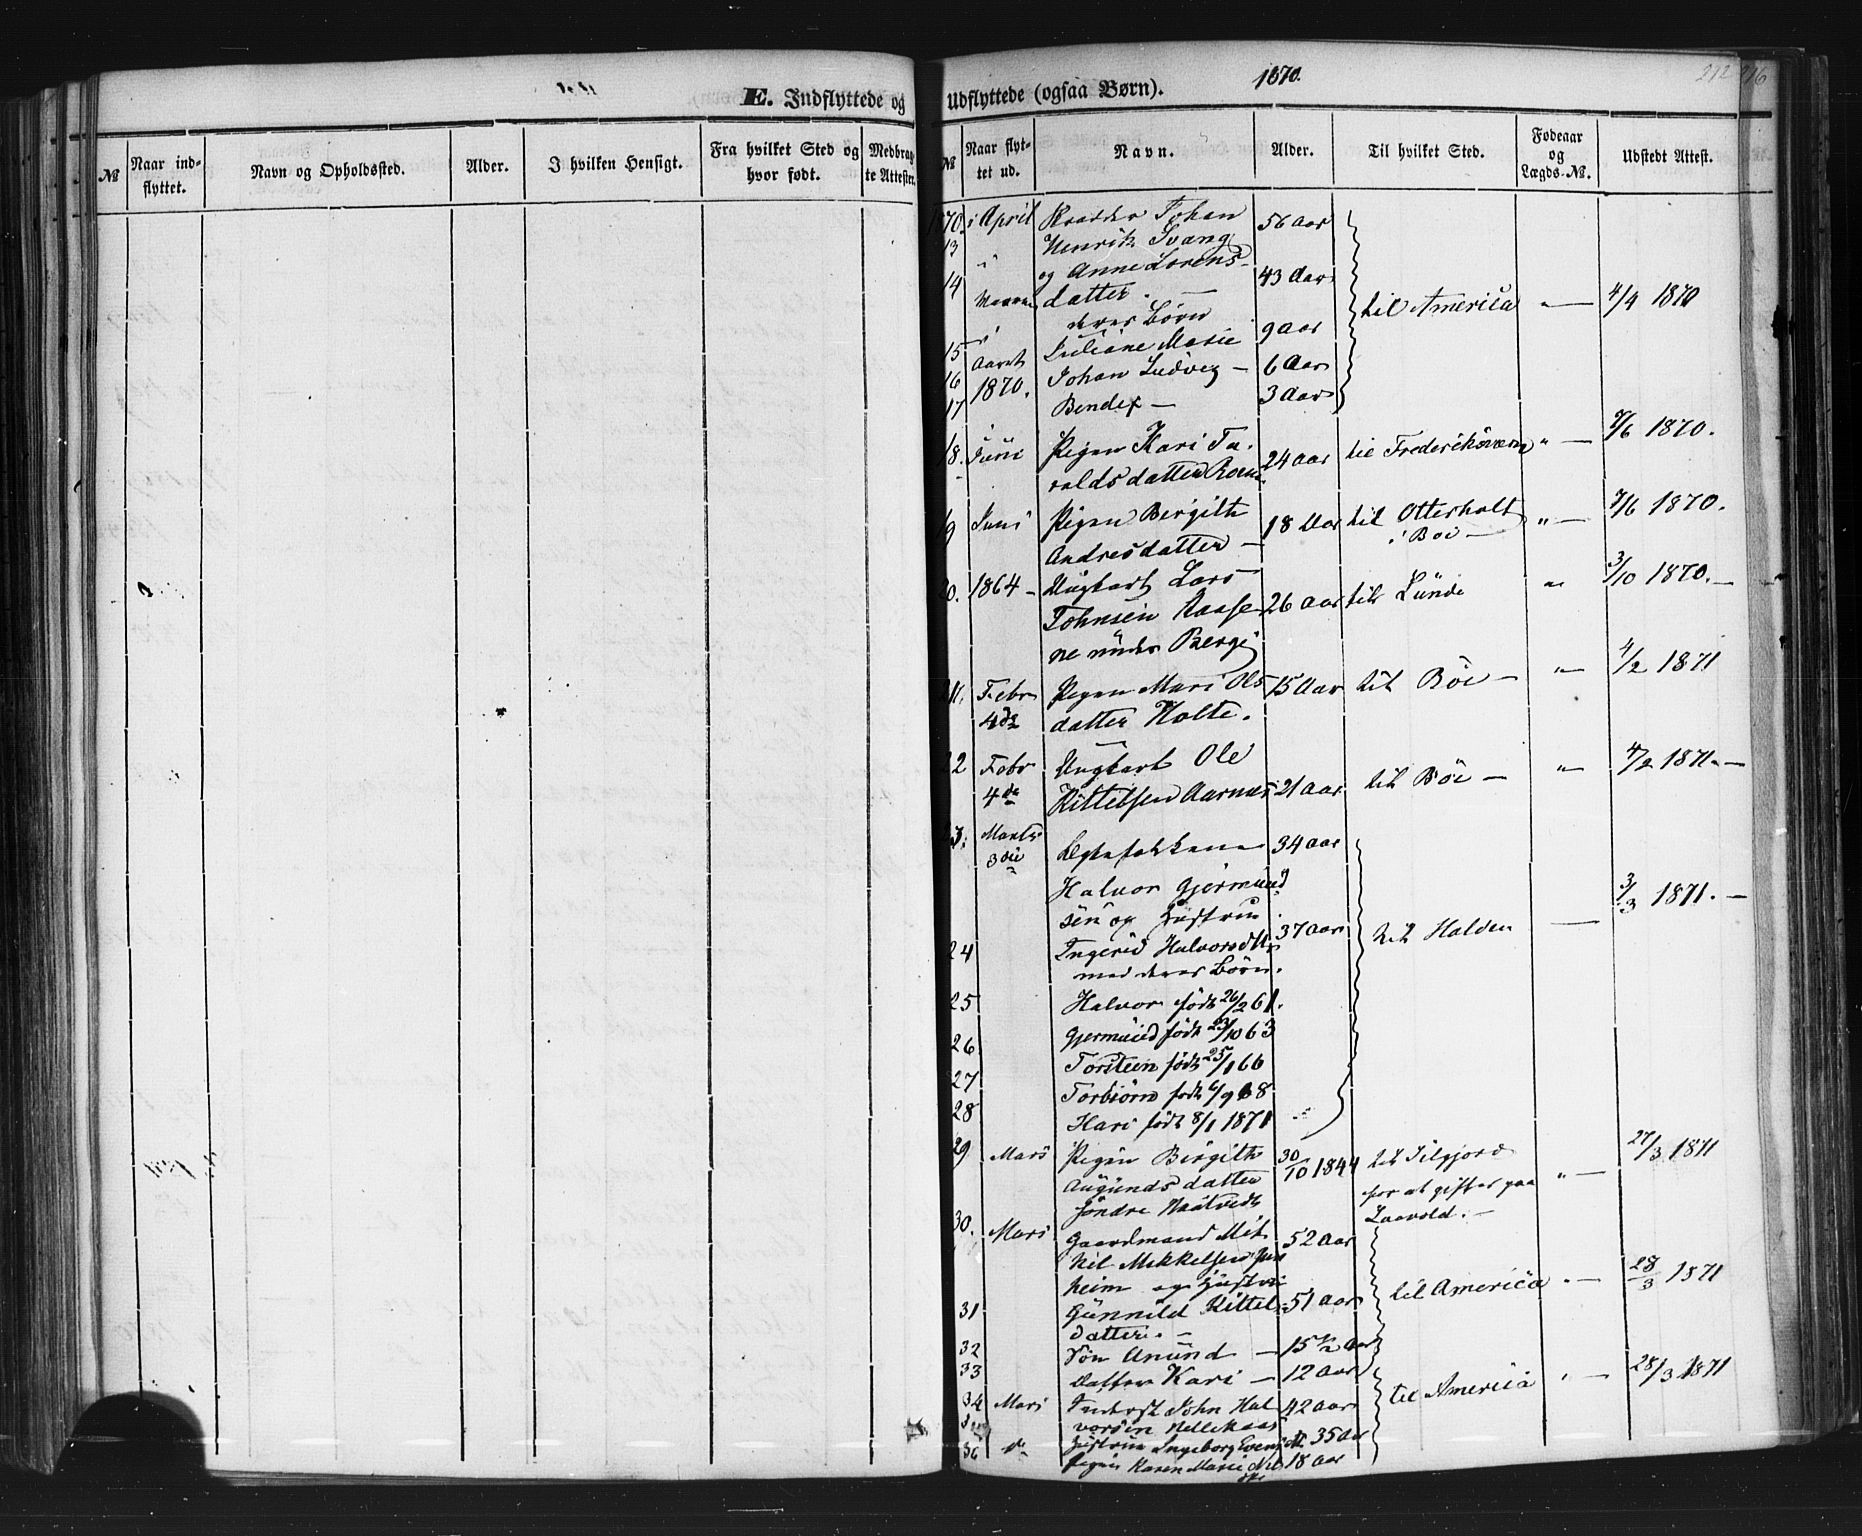 1870.
212 216
E. Indflyttede og Udflyttede (ogsaa Børn).
№ Naar indflyttet. Navn og Opholdssted. Alder. I hvilken Hensigt. Fra hvilket Sted og hvor født. Medbragte Attester.
№ Naar flyttet ud. Navn. Alder. Til hvilket Sted. Fødeaar og Lægds-№. Udstedt Attest.
1870. i April Johan 56 Aar
13 Henrik Svang
14 og Anne Lorens- 43 Aar
datter. — til America " — 4/4 1870
deres Børn
15 Juliane Marie 9 Aar
16 Aaret Johan Ludvig — 6 Aar
17 1870. Bendix — 3 Aar
18. Juni Pigen Kari Ta- 24 Aar til Frederiksværn " — 7/6 1870.
raldsdatter
19 Juni Pigen Bergith 18 Aar til Otterholt " — 7/6 1870.
Andresdatter — i Böe —
20. 1864 — Ungkarl Lars 3/10 1870. —
Johnsen Aase- 26 Aar til Lunde "
ne under Berge
21. Febr Pigen Mari Ols 15 Aar til Böe — " — 4/2 1871
4de datter Holte.
22 Febr Ungkarl Ole til Böe — " — 4/2 1871. —
4de Kittelsen Aarnes 21 Aar
23. Marts Ægtefolkene 34 Aar
3die
Halvor Gjermund 3/3 1871. —
sen og Hustru
24 Ingerid Halvorsdtr 37 Aar til Holden —
med deres Börn.
25 Halvor födt 26/2 61.
26 Gjermund födt 23/10 63
27 Torsteen födt 25/1 66
Torbiörn födt 6/9 68
28 Kari födt 8/1 1871
29 Mars Pigen Birgith 30/10 1844 til Silgjord 27/3 1871
Augunds datter for at giftes paa " —
Söndre Laavold. —
30. Mars Gaardmand Mik 52 Aar
kel Mikkelsen
heim og Hustru til America " — 28/3 1871
31 Gunnild Kittels- 51 Aar
datter. —
32 Sön Anund — 15 1/2 Aar
33 Datter Kari — 12 Aar
34 Mars Inderst John Hal 42 Aar til America " — 28/3 1871
vorsen
do Hustru Ingeborg 35 Aar
36 Pigen Karen Marie 18 Aar